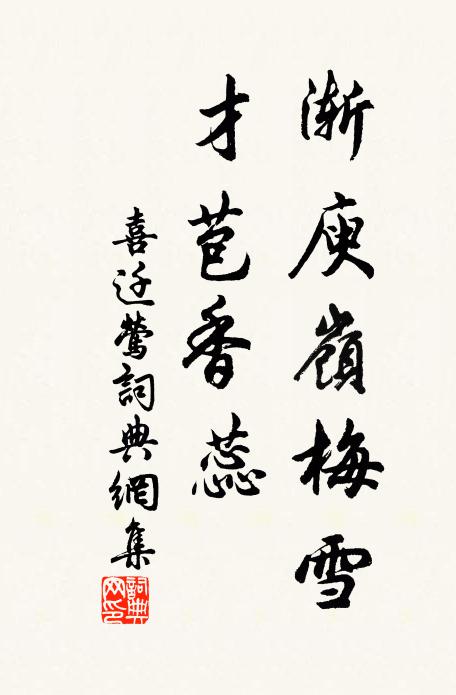 渐庾嶺梅雪
才苞香蕊
喜迁莺詞典網集
詞典网印